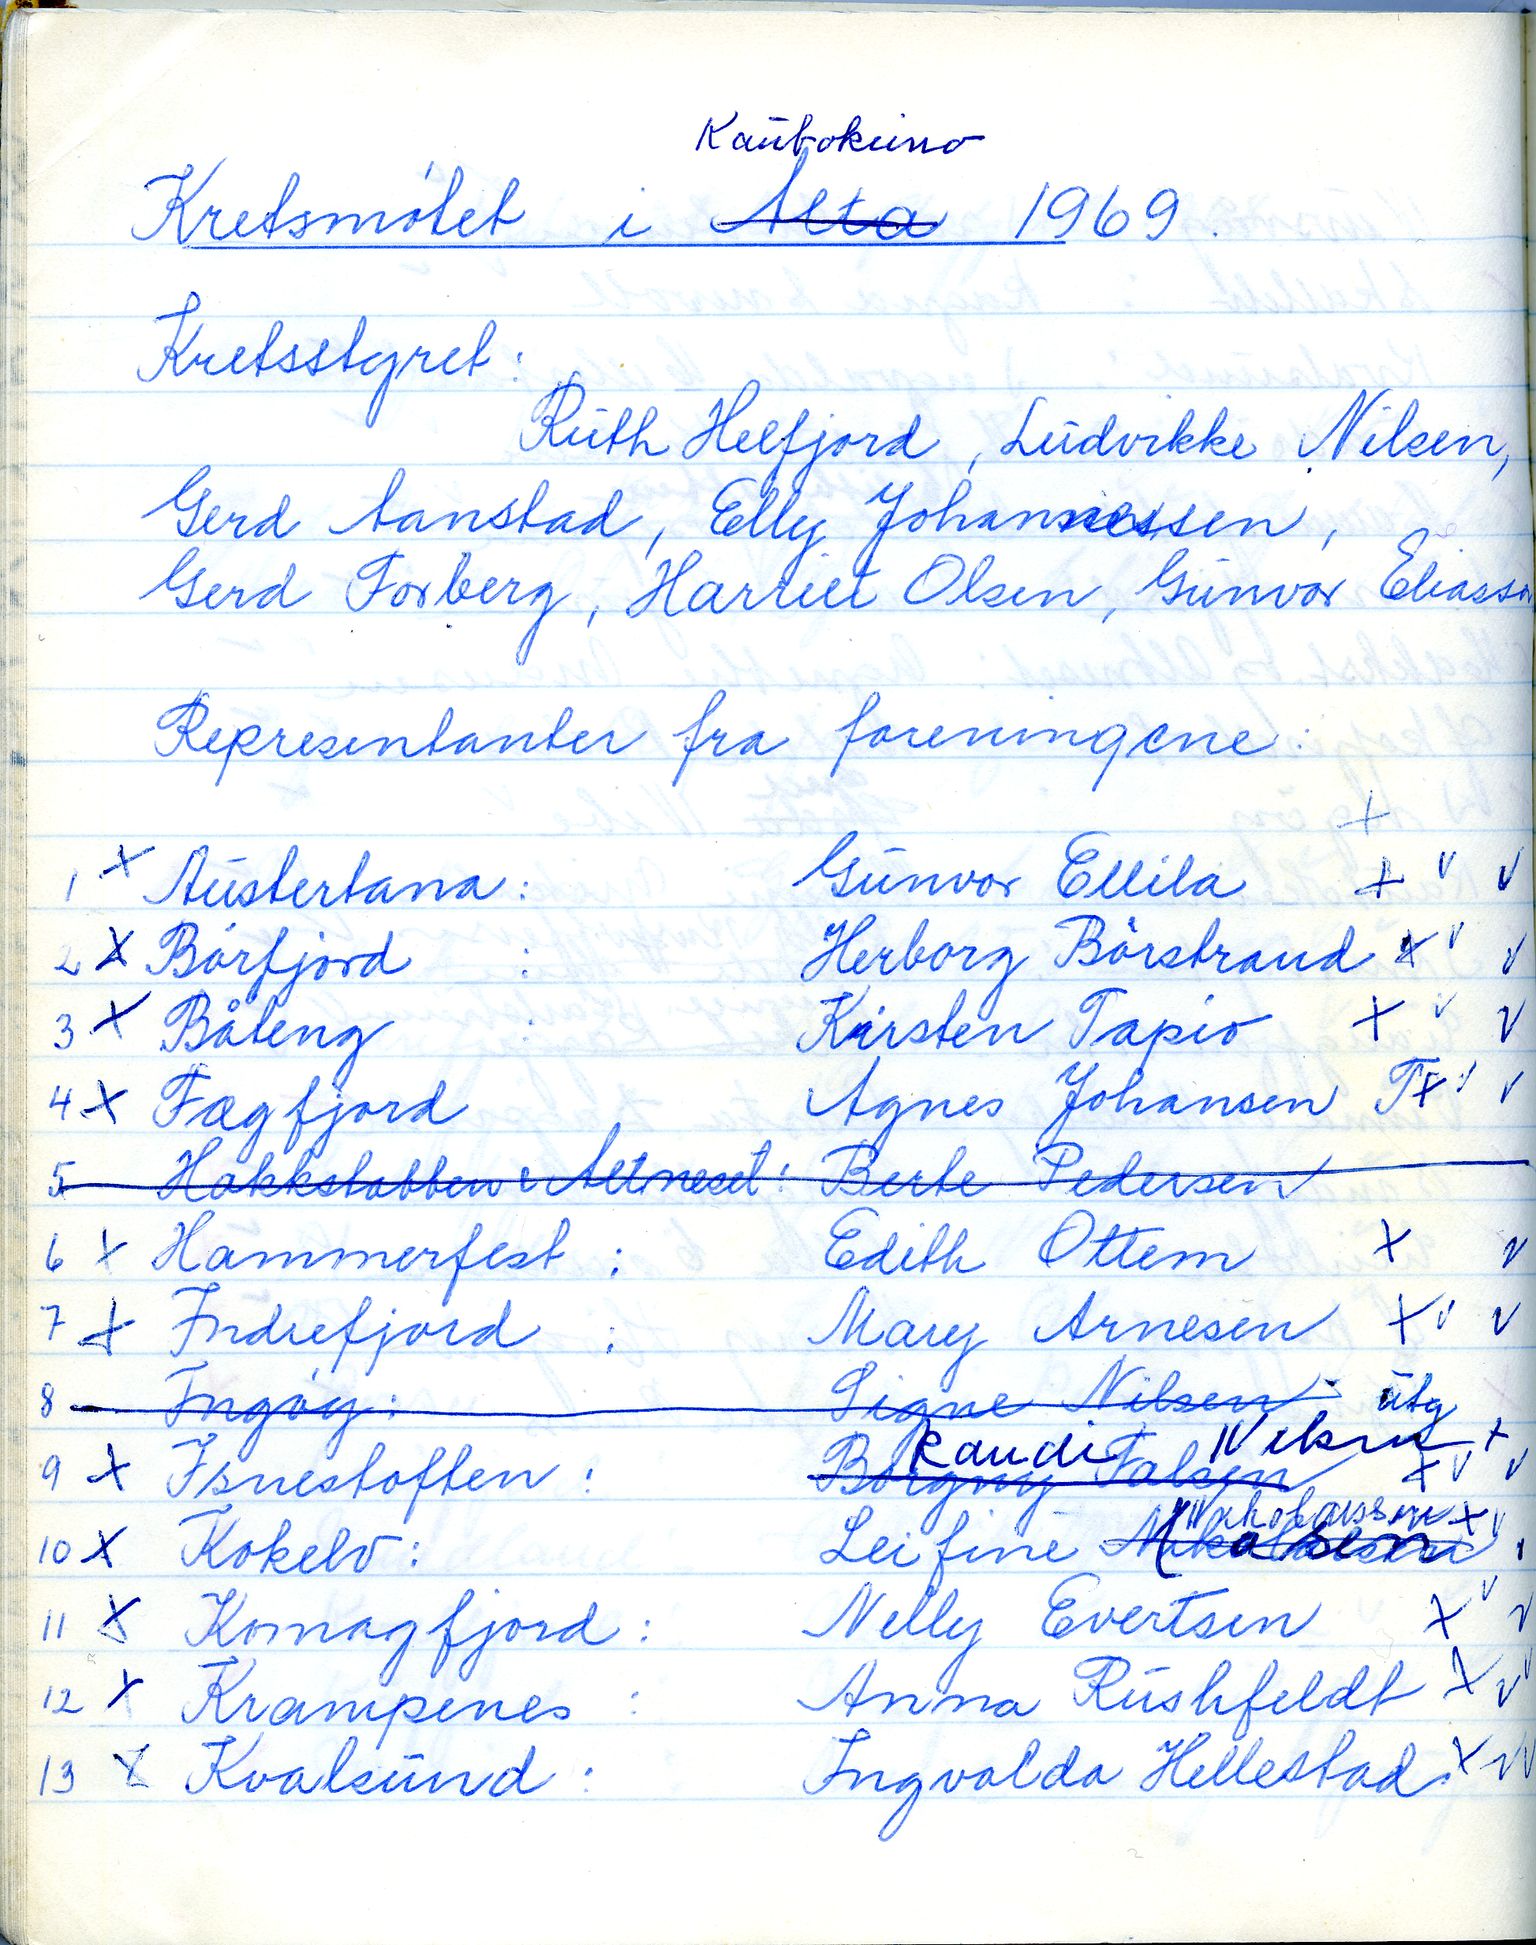 Kautokeino
Kretsmøtet i Alta 1969.
Kretsstyret:
Ruth Helfjord, Ludvikke Nilsen,
Gerd Aanstad, Elly Johannessen,
Gerd Forberg, Harriet Olsen, Gunvor Eliassen
Representanter fra foreningene:
1 x Austertana: Gunvor Ellila + v v
2 x Børfjord : Herborg Børstrand x v v
3 x Båteng : Kirsten Tapio x v v
4 x Fægfjord Agnes Johansen T x v v
5 Hakkstabben & Altneset: Berte Pedersen
6 x Hammerfest : Edith Ottem x v
7 x Indrefjord : Mary Arnesen x v v
8 Ingøy: Signe Nilsen utg
Randi Nilsen x
9 x Isnestoften : Borgny Falsen x v v
10 x Kokelv: Leifine x v
11 x Komagfjord : Nelly Evertsen x v v
12 x Krampenes : Anna Rushfeldt x v v
13 x Kvalsund : Ingvalda Hellestad. x v v